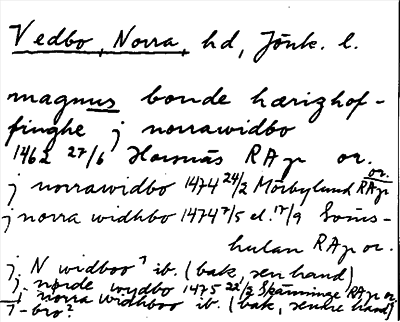 Vedbo, Norra, hd, Jönk. l.
magnus bonde hærighof-
finghe j norrawidbo
1462 27/6 Hornäs RAp or.
j norrawidbo 1474 24/2 Mörbylund RAp or.
j norra widhbo 1474 7/5 el. 17/9 Söms-
hulan RAp or.
j N widboo ? ib. (bak, sen hand)
j nørde wydbo 1475 22/2 Skänninge RAp or.
j norra widhboo ib. (bak, senre hand)
? -bro?